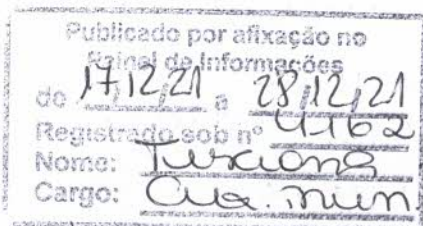 Publicado por afixação no
Painel de Informações
de 17/12/21 a 28/12/21
Registrado sob nº 4162
Nome:
Cargo: